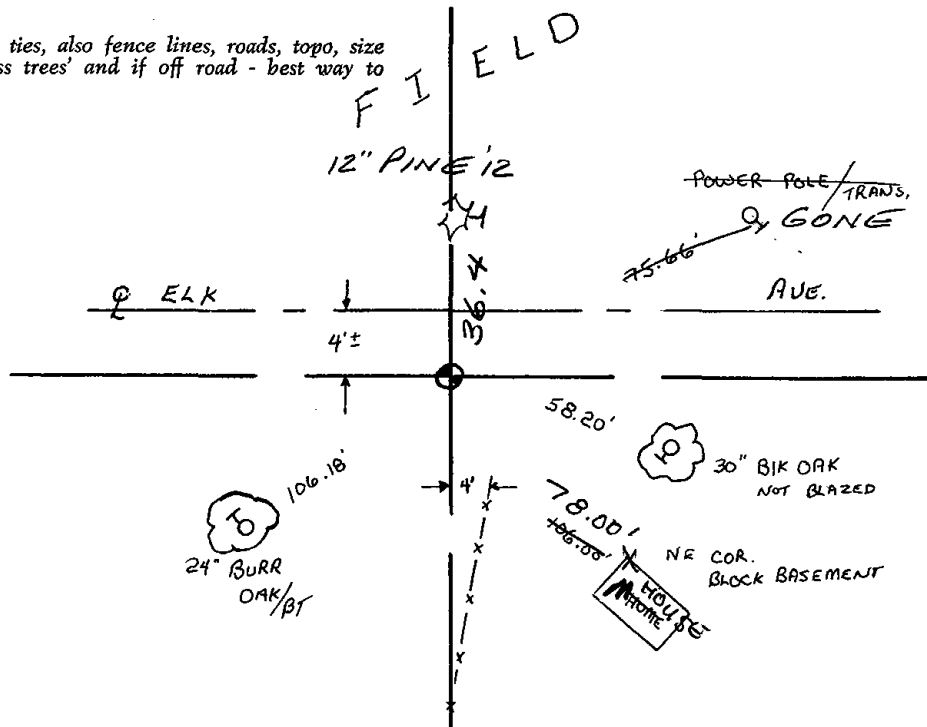 ties, also fence lines, roads, topo, size
ss trees' and if off road - best way to
FIELD
12" PINE '12
36.4
POWER POLE/TRANS.
GONE
75.66'
℄ ELK AVE.
4'±
58.20'
30" BlK OAK
NOT BLAZED
106.18'
24" BURR
OAK/BT
4'
78.00'
106.00'
NE COR.
BLOCK BASEMENT
HOUSE
HOME